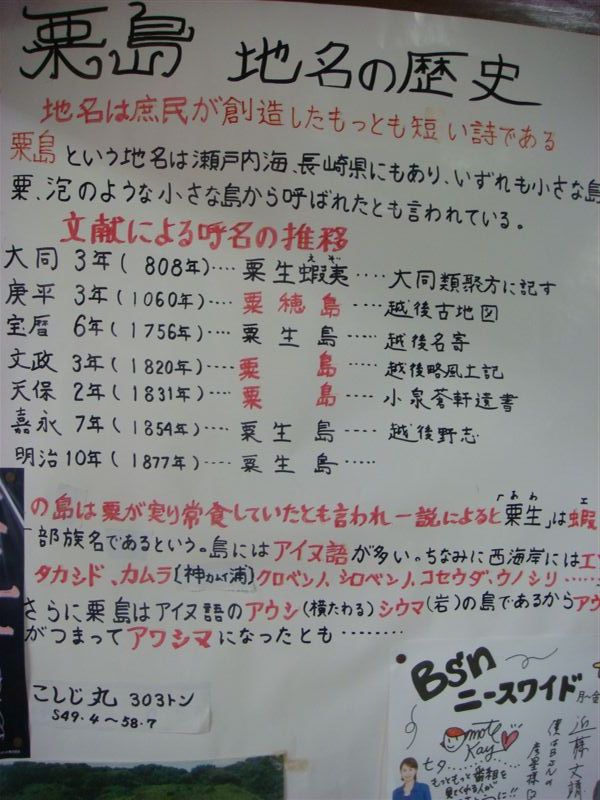 粟島 地名の歴史
地名は庶民が創造したもっとも短い詩である
粟島という地名は瀬戸内海、長崎県にもあり、いずれも小さな島
粟、泡のような小さな島から呼ばれたとも言われている。
文献による呼名の推移
大同 3年(808年)‥‥粟生蝦夷‥‥大同類聚方に記す
えぞ
庚平 3年(1060年)‥‥粟穂島‥‥越後古地図
宝暦 6年(1756年)‥‥粟生島‥‥越後名寄
文政 3年(1820年)‥‥粟島‥‥越後略風土記
天保 2年(1831年)‥‥粟島‥‥小泉蒼軒遺書
嘉永 7年(1854年)‥‥粟生島‥‥越後野志
明治10年(1877年)‥‥粟生島‥‥
の島は粟が実り常食していたとも言われ一説によると「粟生」は蝦
あわ
エ
部族名であるという。島にはアイヌ語が多い。ちなみに西海岸にはエ
タカシド、カムラ〔神カムイ浦〕クロベン、シロベン、コセウダ、ウノシリ‥‥
さらに粟島はアイヌ語のアウシ(横たわる)シウマ(岩)の島であるからアウ
がつまってアワシマになったとも‥‥‥‥
こしじ丸 303トン
S49・4〜58・7
BSn
ニースワイド
月〜金
近藤丈靖
mote
Kay
もっともっと番組を
見てくれる人が